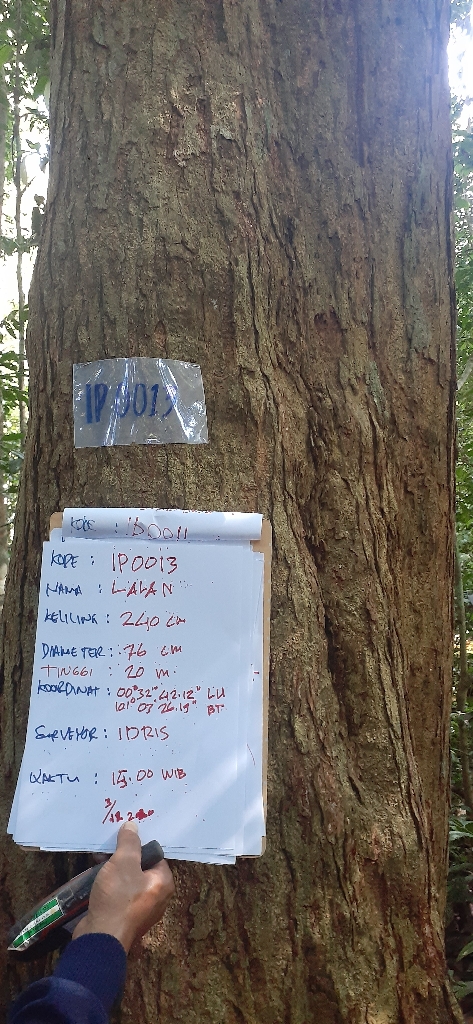 IP0013
KODE : IP0011
KODE : IP0013
NAMA : LALAN
KELILING : 240 CM
DIAMETER : 76 CM
TINGGI : 20 M
KOORDINAT : 00°32" 42.12" LU
101° 03' 26.19" BT
SURVEYOR : IDRIS
WAKTU : 15.00 WIB